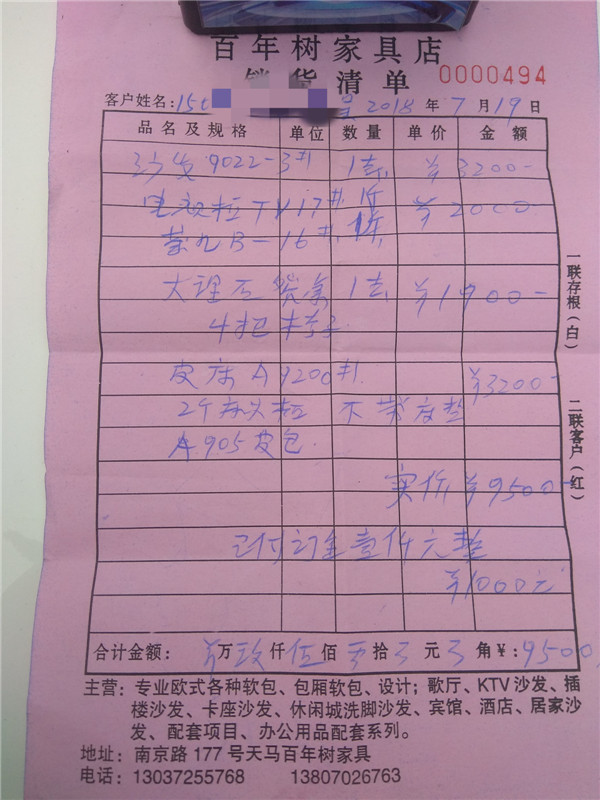 百年树家具店
销货清单 0000494
客户姓名: 2018年7月19日
品名及规格 单位 数量 单价 金额
沙发9022-3# 1套 ¥3200-
电视柜TV17# 1个 ¥2000-
茶几B-16# 1个
大理石餐桌 1套 ¥1900-
4把椅子
皮床A9200# ¥3200-
2个床头柜 不带床垫
A905皮包
实价¥9500-
已付订金壹仟元整
¥1000元
合计金额: 万玖仟伍佰 拾 元 角¥:9500
一联存根(白)
二联客户(红)
主营:专业欧式各种软包、包厢软包、设计;歌厅、KTV沙发、插
楼沙发、卡座沙发、休闲城洗脚沙发、宾馆、酒店、居家沙
发、配套项目、办公用品配套系列。
地址:南京路177号天马百年树家具
电话:13037255768 13807026763